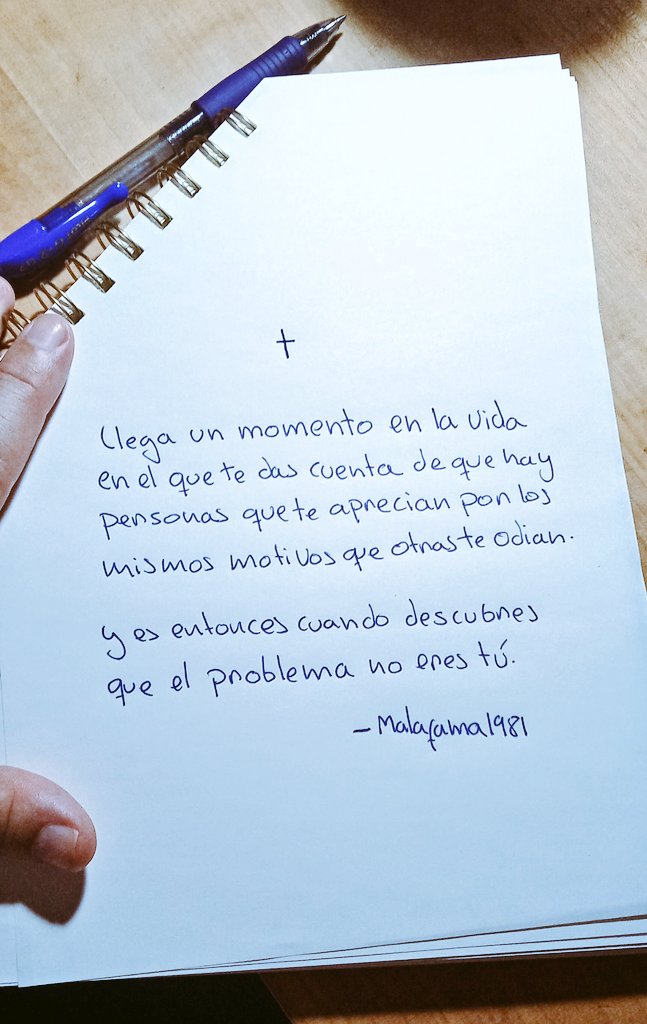 †
Llega un momento en la vida
en el que te das cuenta de que hay
personas que te aprecian por los
mismos motivos que otras te odian.
y es entonces cuando descubres
que el problema no eres tú.
- Malafama1981